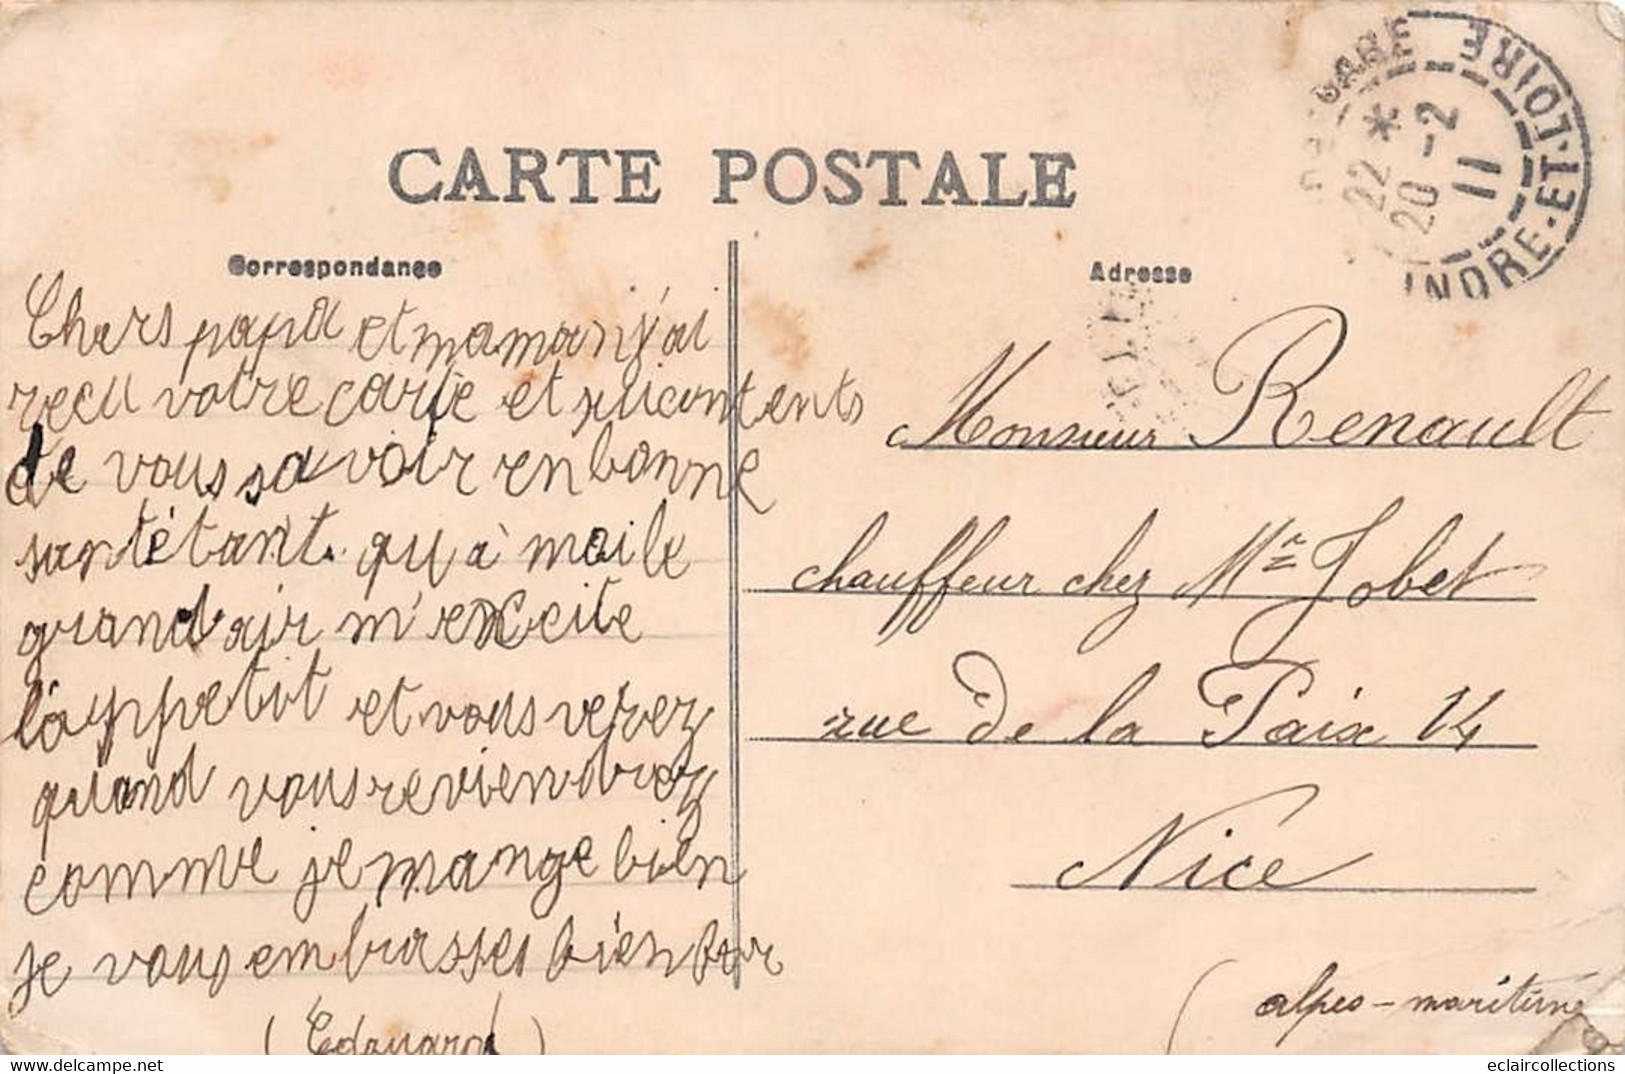 CARTE POSTALE
Correspondance
Chers papa et maman j'ai
reçu votre carte et sui contents
de vous savoir en bonne
santé tant qu'a moi le
grand air m'excite
l'appetit et vous verez
quand vous reviendrez
comme je mange bien
je vous embrasses bien for
(Edouard)
Adresse
Monsieur Renault
chauffeur chez Mr Jobet
rue de la Paix 14
Nice
(alpes-maritime
GARE INDRE-ET-LOIRE
22 *
20-2
11
eclaircollections